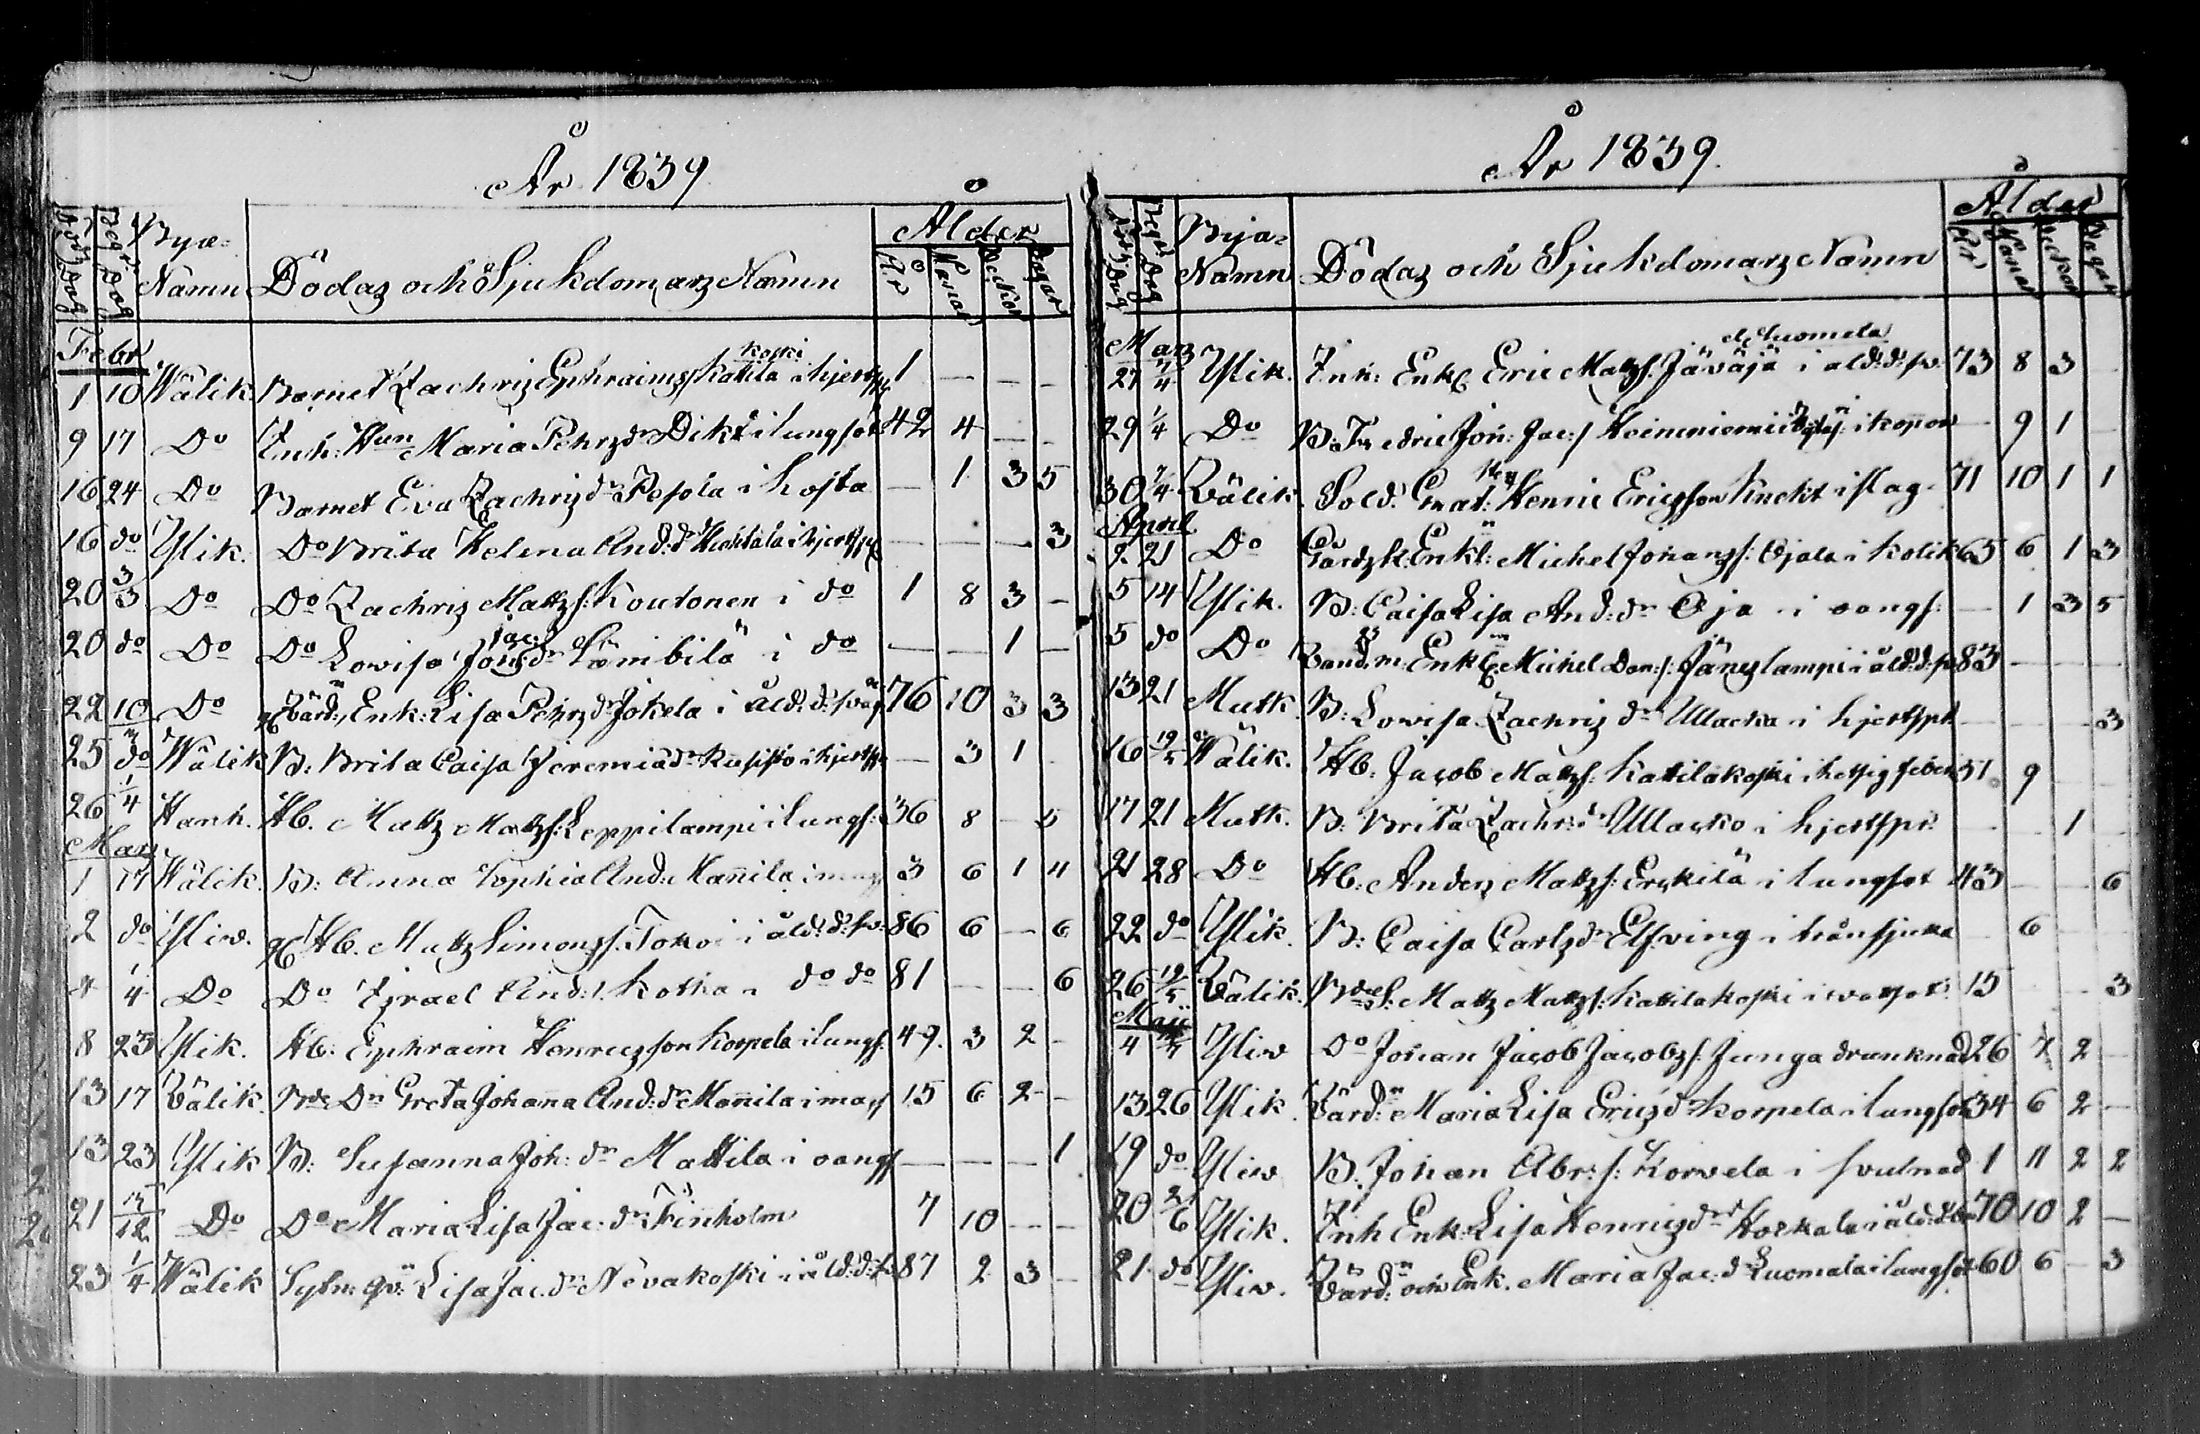 År 1839
Död: Dag Begr: Dag Bya= Namn Dödas och Sjukdomars Namn Ålder
År Månad Veckor Dagar
Febr
1 10 Wälik. Barnet Zachris Ephraimss Kattilakoski i hjertspr 1 — — —
9 17 Do Inh: Hun Maria Pehrsdr Dikt i lungsot 42 4 — —
16 24 Do Barnet Eva Zachrisdr Pesola i hosta — 1 3 5
16 do Yfik. Do Brita Helena And:dr i hjertspr — — — 3
20 3/3 Do Do Zachris Mattss: Koutonen i do 1 8 3 —
20 do Do Do Lovisa Jac:dr Lambilä i do — — 1 —
22 10 Do Enk: Lisa Pehrsdr Jokela i åld:d:svag 76 10 3 3
25 do Wälik B: Brita Caisa Jeremiædr Kuusisto i hjertspr — 3 1
26 1/4 Hanh. Hb. Matts Mattss: Leppilampi i lungs: 36 8 — 5
Mars
1 17 Wälik. B: Anna Sophia And: Mannila i mags 3 6 1 4
2 do Yliv. Hb. Matts Simonss: Toko i åld:d:sv: 86 6 — 6
4 1/4 Do Do Israel And:s. Kotka i do do 81 — — 6
8 23 Yfik. Hb: Ephraim Henricsson Korpela i lungs: 49. 3 2 —
13 17 Wälik. Greta Johanna And:dr Mannila i mags 15 6 2 —
13 23 Yfik B: Susanna Joh:dr Mattila i oangs — — — 1
21 Do Do Maria Lisa Jac:dr Finholm 7 10 — —
23 1/4 Wälik Sytn: qv: Lisa Jac:dr Nevakoski i åld:d:s 87 2 3 —
År 1839.
Död: Dag Begr: Dag Bya= Namn Dödas och Sjukdomars Namn Ålder
År Månad Veckor Dagar
Mars
27 1/4 Yfik. Inh: Enkl Eric Mattss: Jäväjä Luomala i åld:d:sv. 73 8 3 —
29 1/4 Do B: Fredric Joh: Jac:s Heineniemi i koppor — 9 1 —
30 7/4 Wälik. Sold: Henric Ericsson Knekt i slag 71 10 1 1
April
2. 21 Do Enkl: Michel Johanss: Ojala i kolik 65 6 1 3
5 14 Yfik. B: Caisa Lisa And:dr Oja i oangs: — 1 3 5
5 do Do Enkl Michel Dan:s: Jäneslampi i åld:d:sv 83 — — —
13 21 Mutk. B: Lovisa Zachrisdr Ullacka i hjertspr — — — 3
16 19/5 Wälik. Hb: Jacob Mattss: Kattilakoski i hetsig feber 51 9
17 21 Mutk. B: Brita Zachr:dr Ullacko i hjertspr. — — 1 —
21 28 Do Hb: Anders Mattss: Erkkilä i lungsot 43 — — 6
22 do Yfik. B: Caisa Carlsdr Elfving i 6
26 19/5 Wälik. Matts Mattss: Kattilakoski i wattsot: 15 — — 3
Maji
4 Yliv Do Johan Jacob Jacobss: Junga drunknad 26 7 2 —
13 26 Yfik. Värd:n Maria Lisa Ericsdr Korpela i lungsot 34 6 2 —
19 do Yliv B. Johan Abr:s: Korvela i svulnad 1 11 2 2
20 2/6 Yfik. Inh Enk: Lisa Henricsdr i åld:d:sv 70 10 2 —
21 do Yliv. Värd:n och Enk. Maria Jac:dr Luomala i lungsot 60 6 — 3